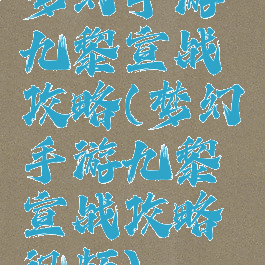 梦幻手游
九黎宣战
攻略(梦幻
手游九黎
宣战攻略
视频)